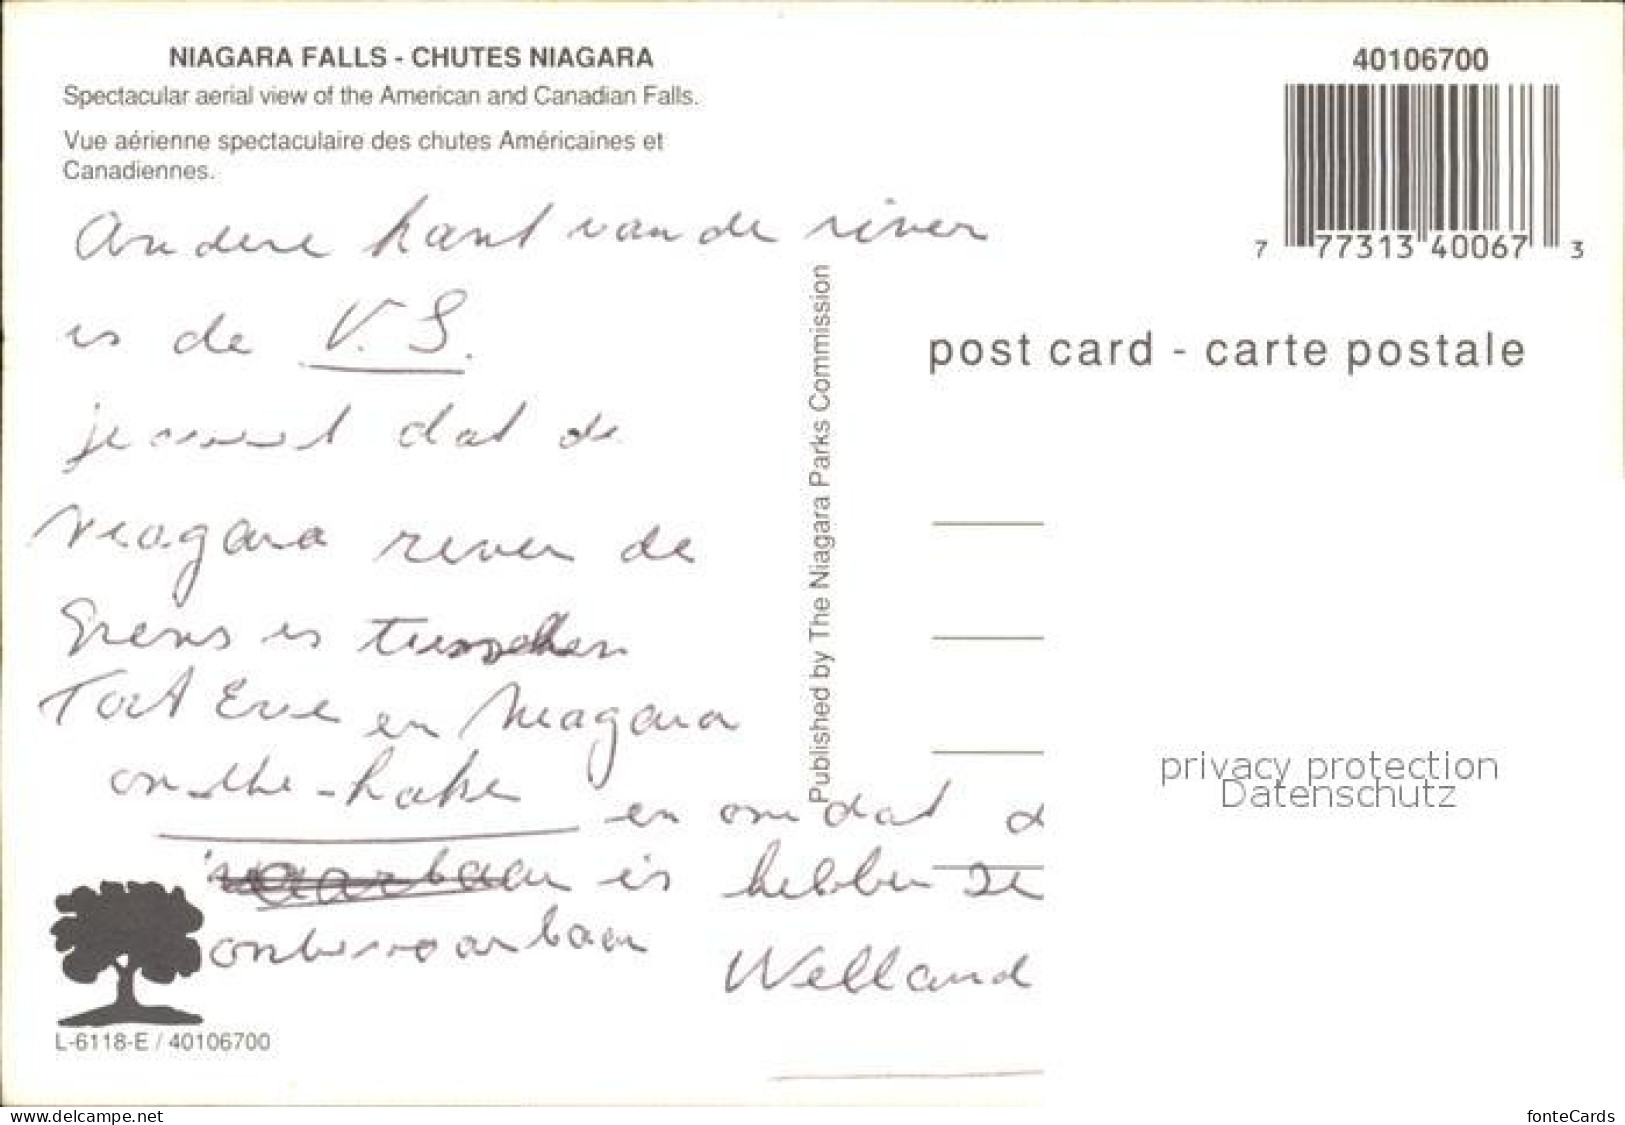 NIAGARA FALLS - CHUTES NIAGARA
Spectacular aerial view of the American and Canadian Falls.
Vue aérienne spectaculaire des chutes Américaines et
Canadiennes.
40106700
7 77313 40067 3
post card - carte postale
Published by The Niagara Parks Commission
Andere kant van de river
is de V.S.
je weet dat de
Niagara river de
Grens is tusschen
Fort Erie en Niagara
on-the-lake en omdat d
is hebben ze
onbevaarbaar Welland
L-6118-E / 40106700
privacy protection
Datenschutz
www.delcampe.net
fonteCards